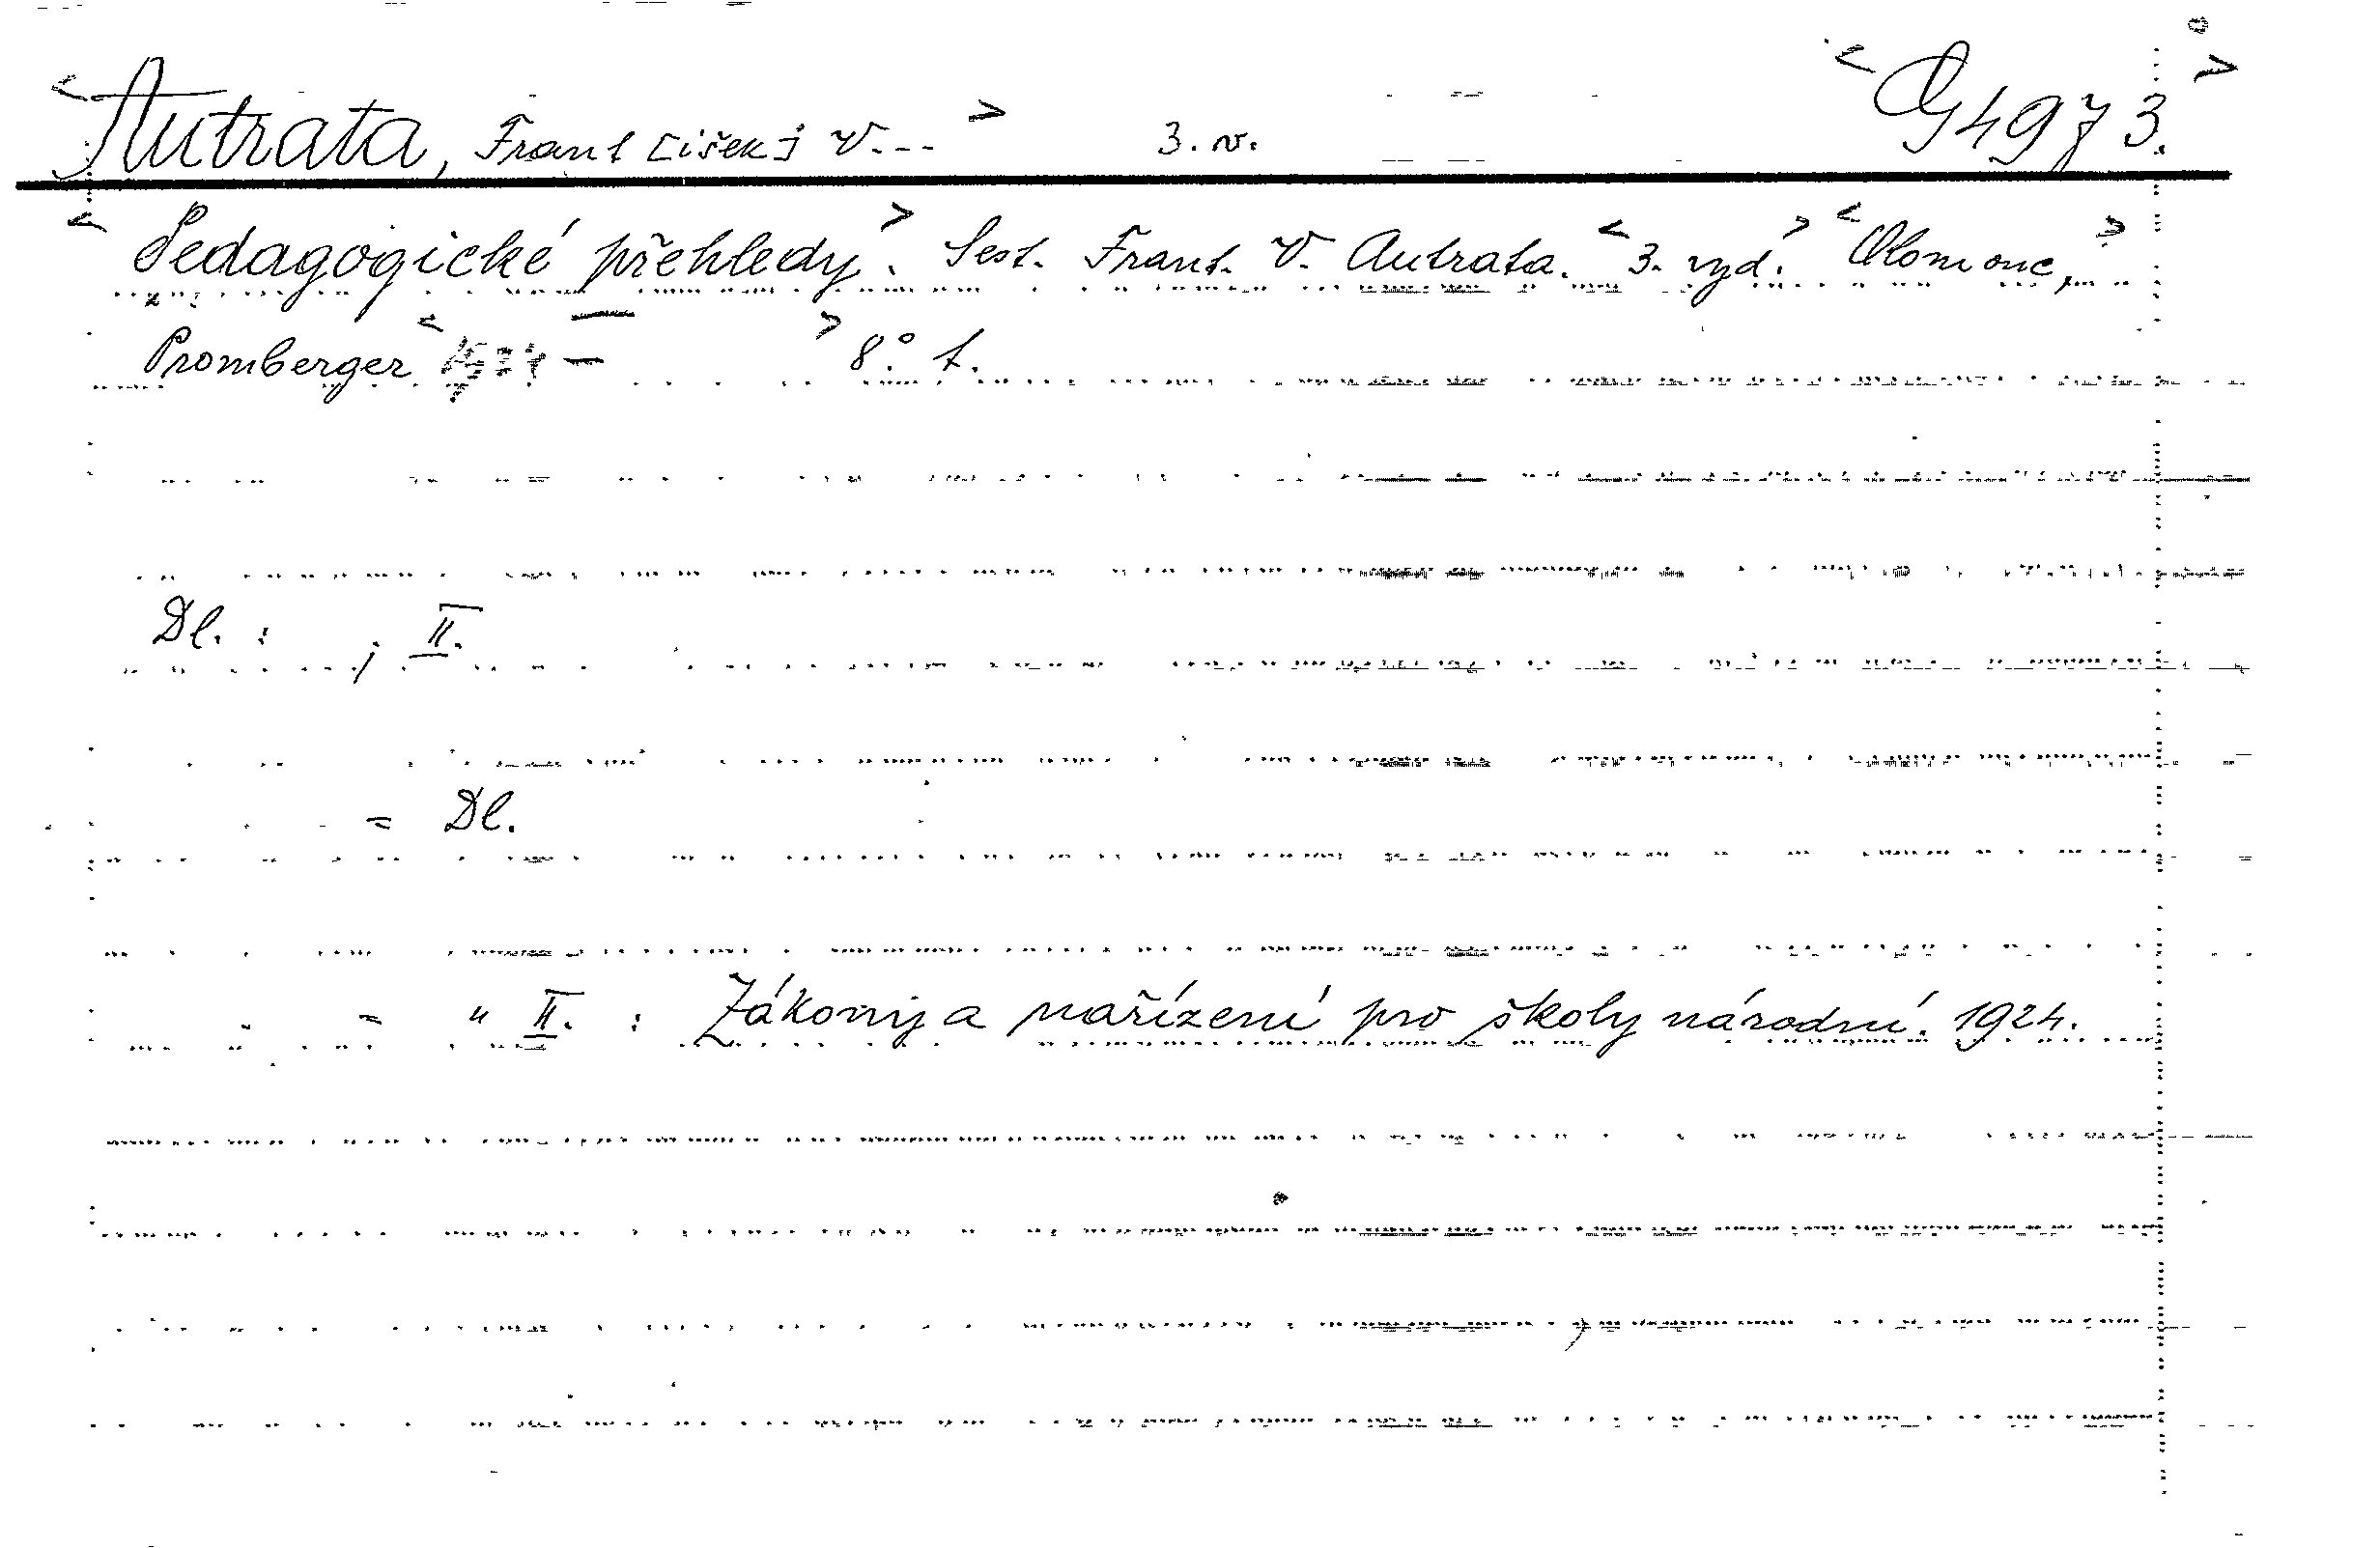 <Autrata, Frant[išek] V...> 3. v. <G 4973.>
<Pedagogické přehledy>. Sest. Frant. V. Autrata. <3. vyd.> <Olomouc,>
Promberger <1924 – > 8°. t.
Dl. : , II.
= Dl.
= " II. : Zákony a nařízení pro školy národní. 1924.